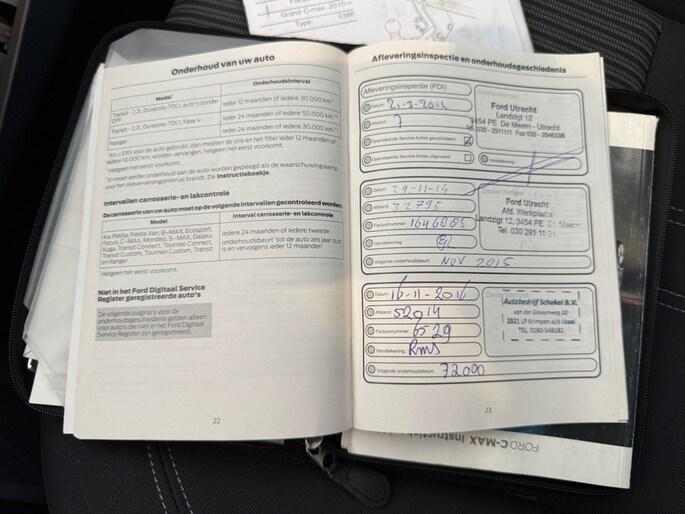 Grand C-max, 2010->
Type:
5386
Onderhoud van uw auto
Model
Onderhoudsinterval
Transit - 2.2L Duratorq-TDCi, auto's zonder DPF
Ieder 12 maanden of iedere 30.000 km
Transit - 2.2L Duratorq-TDCi, Fase V
Ieder 24 maanden of iedere 50.000 km
Ranger
Ieder 24 maanden of iedere 30.000 km
Als u E85 voor de auto gebruikt, dan moeten de olie en het filter ieder 12 maanden of
iedere 10.000 km, worden vervangen, hetgeen het eerst voorkomt.
Hetgeen het eerst voorkomt.
voor het olieverversingsinterval brandt. Zie Instructieboekje.
Intervallen carrosserie- en lakcontrole
De carrosserie van uw auto moet op de volgende intervallen gecontroleerd worden:
Model
Interval carrosserie- en lakcontrole
Ka, Fiesta, Fiesta Van, B-MAX, Ecosport,
Focus, C-MAX, Mondeo, S-MAX, Galaxy,
Kuga, Transit Connect, Tourneo Connect,
Transit Custom, Tourneo Custom, Transit
en Ranger
Iedere 24 maanden of iedere tweede
onderhoudsbeurt tot de auto zes jaar oud
is en vervolgens ieder 12 maanden
Hetgeen het eerst voorkomt.
Niet in het Ford Digitaal Service
Register geregistreerde auto's
De volgende pagina's voor de
onderhoudsgeschiedenis gelden alleen
voor auto's die niet in het Ford Digitaal
Service Register zijn geregistreerd.
22
Afleveringsinspectie en onderhoudsgeschiedenis
Afleveringsinspectie (PDI)
Datum:
Afstand: 7
Openstaande Service-Acties gecontroleerd:
Openstaande Service-Acties uitgevoerd:
Ford Utrecht
Landzigt 12
3454 PE De Meern - Utrecht
Tel. 030 - 2911111 Fax 030 - 2946336
Handtekening:
Datum: 29-11-14
Afstand: 32795
Factuurnummer: 1646885
Handtekening:
Volgende onderhoudsbeurt: NOV 2015
Ford Utrecht
Afd. Werkplaats
Landzigt 12, 3454 PE De Meern
Tel. 030 291 11 21
Datum: 16-11-2016
Afstand: 52914
Factuurnummer: 6529
Handtekening: RMS
Volgende onderhoudsbeurt: 72000
Autobedrijf Schakel B.V.
van der Giessenweg 32
2921 LP Krimpen a/d IJssel
TEL. 0180-548181
23
FORD C-MAX Instructieb